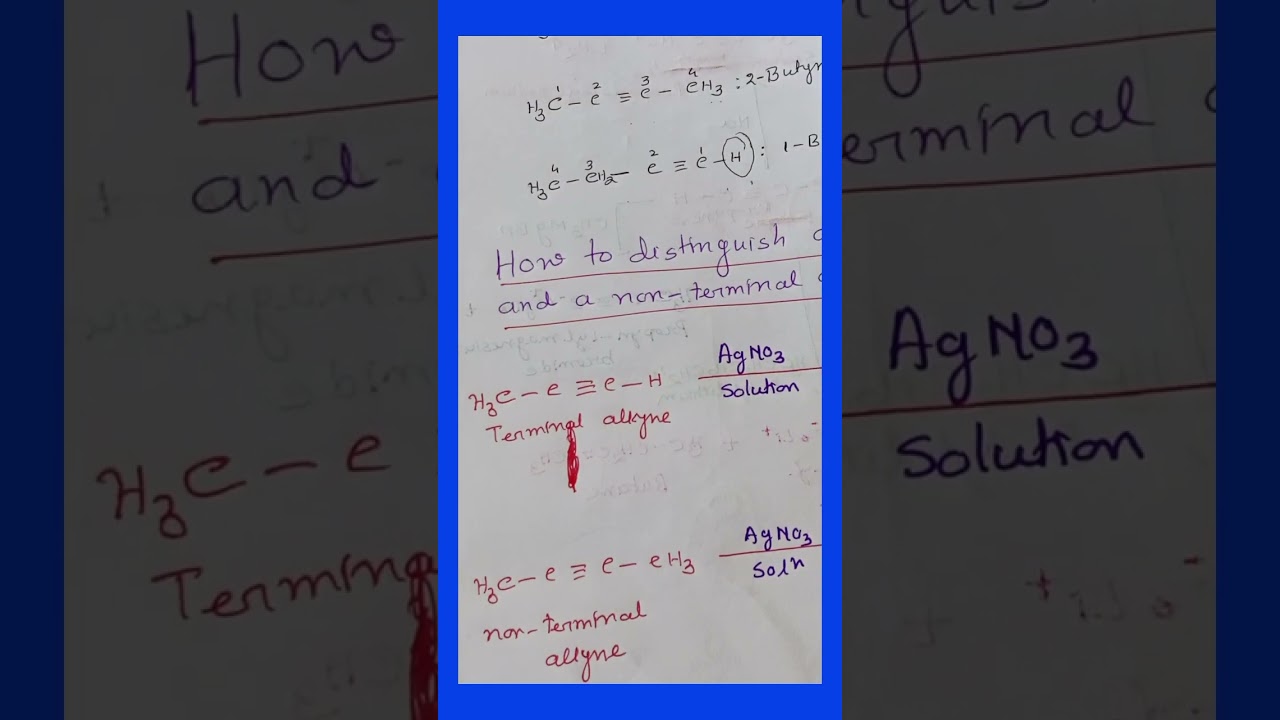 H₃C¹ – C² ≡ C³ – C⁴H₃ : 2-Butyn
H₃C⁴ – C³H₂ – C² ≡ C¹ – H : 1-B
How to distinguish
and a non-terminal
H₃C – C ≡ C – H AgNO₃
Solution
Terminal alkyne
H₃C – C ≡ C – CH₃ AgNO₃
Solⁿ
non-terminal
alkyne